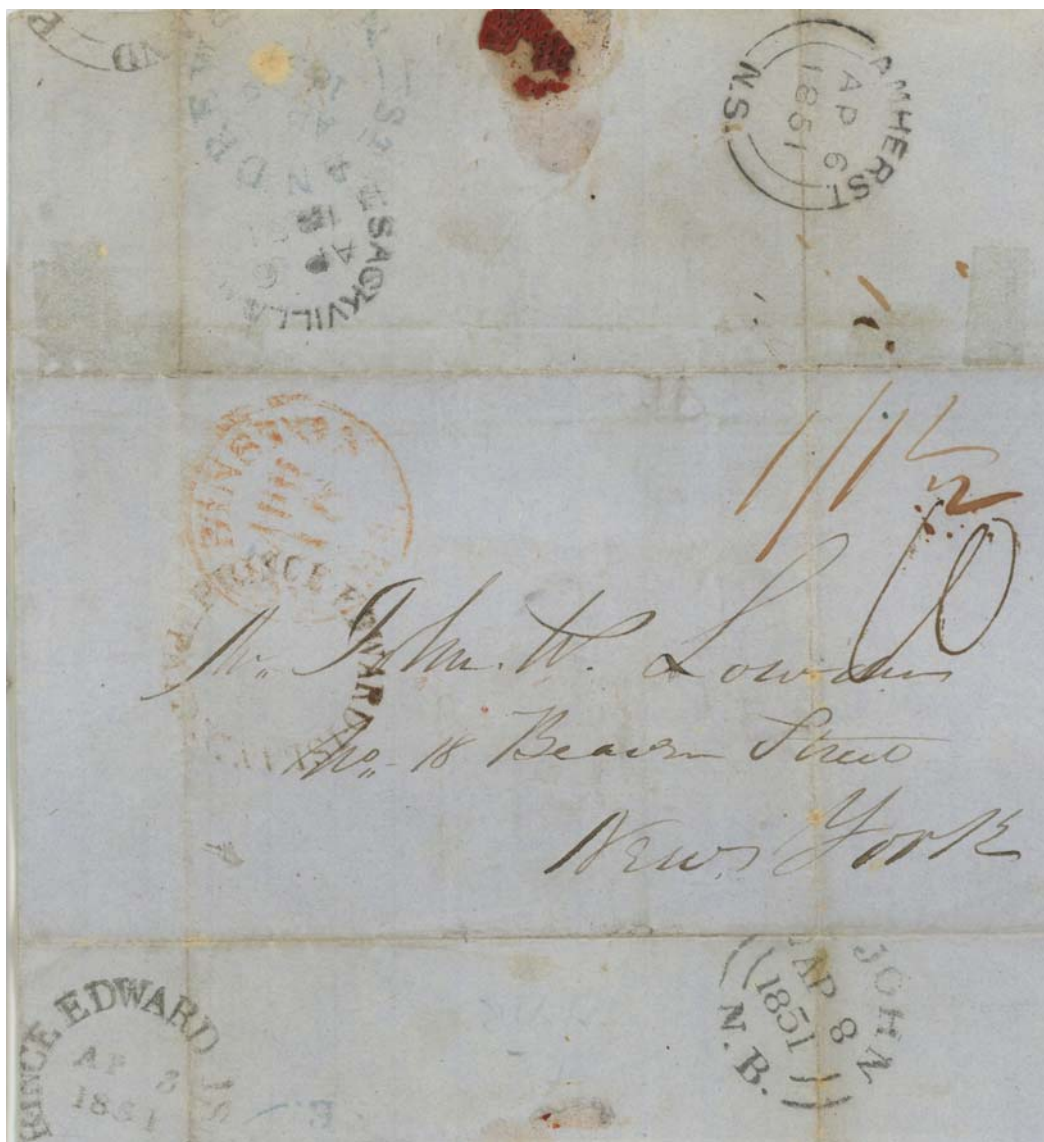 AMHERST
AP 6
1851
N.S.
SACKVILLE
1/1 1/2
10
PRINCE EDWARD
Mr. John W.
No. 18 Beaver Street
New York
PRINCE EDWARD IS
AP 3
1851
JOHN
AP 8
1851
N. B.